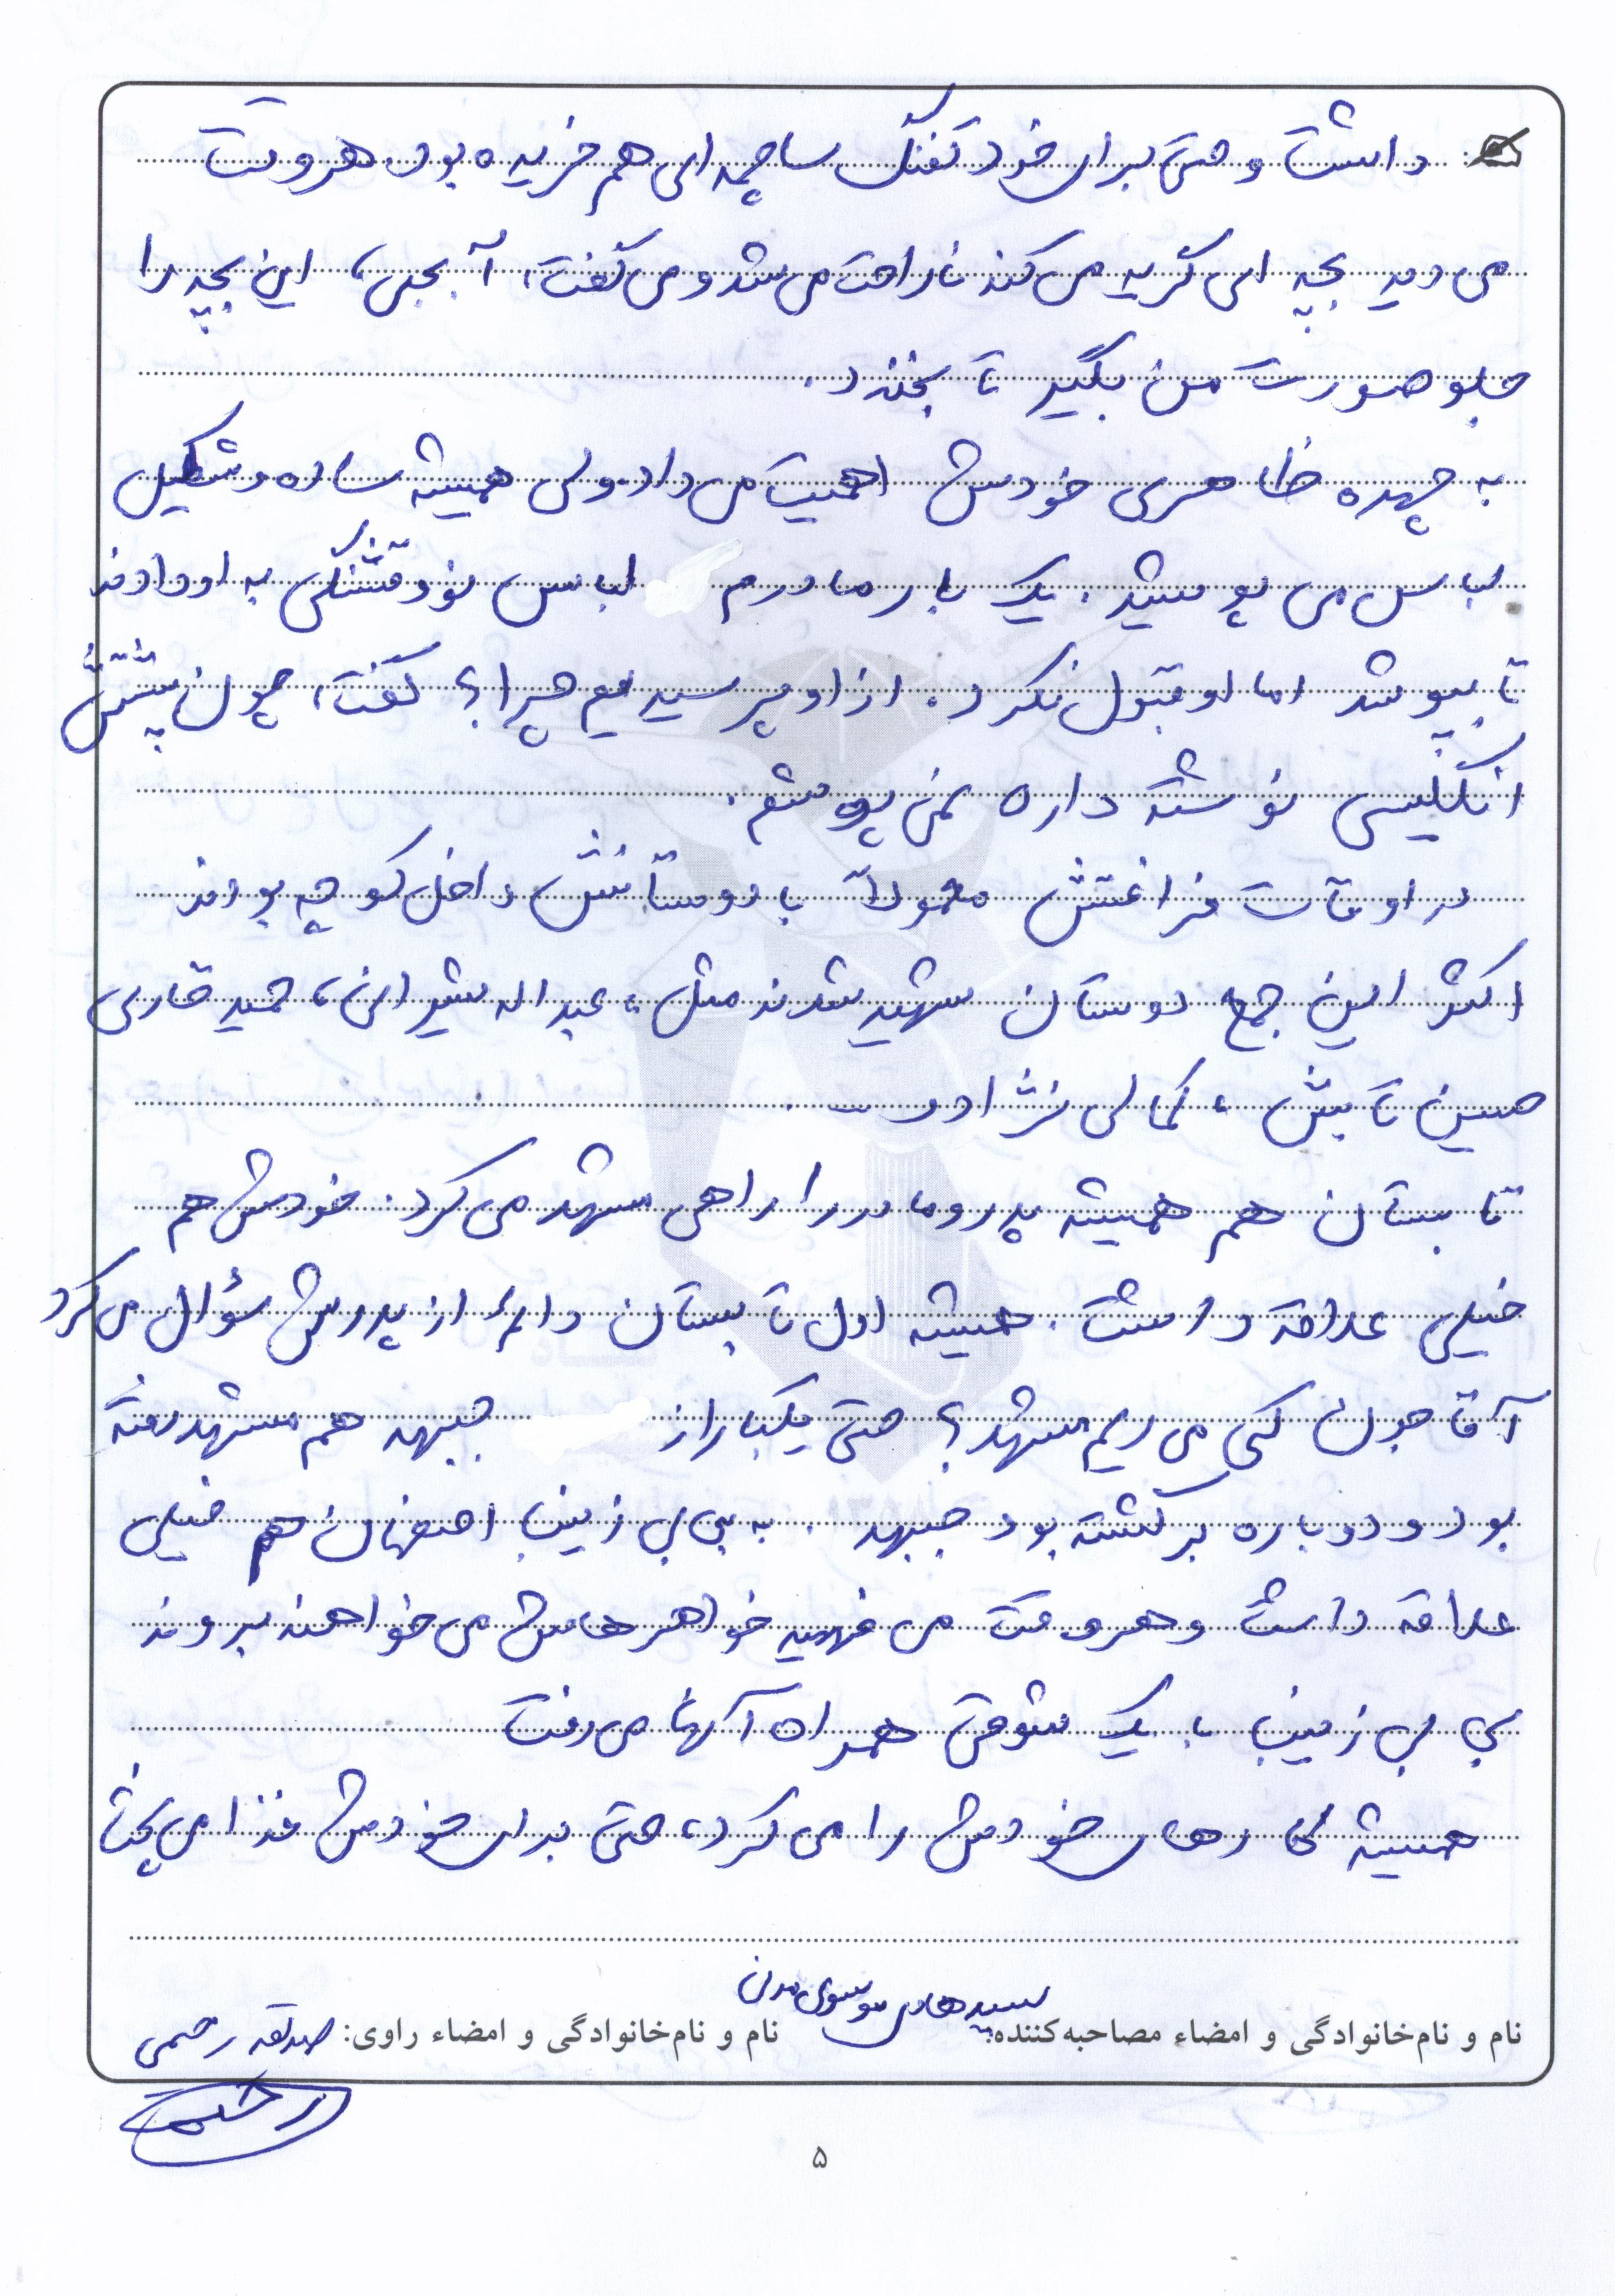 داشت و حتی برای خود تفنگ ساچمه ای هم خریده بود. هر وقت
می دید بچه ای گریه می کند ناراحت می شد و می گفت، آبجی، این بچه را
جلو صورت من بگیر تا بخندد.
به چهره ظاهری خودش اهمیت می داد ولی همیشه ساده و شکیل
لباس می پوشید. یک بار مادرم لباس نو و قشنگی به او دادند
تا بپوشد اما او قبول نکرد. از او پرسیدیم چرا؟ گفت، چون پشتش
انگلیسی نوشته داره نمی پوشم.
در اوقات فراغتش معمولاً با دوستانش داخل کوچه بودند
اکثر این جمع دوستان شهید شدند مثل، عبداله شیرانی، حمید قاری
حسین تابش، کمالی نژاد و ....
تابستان هم همیشه پدر و مادر را راهی مشهد می کرد. خودش هم
خیلی علاقه داشت. همیشه اول تابستان دائم از پدرش سؤال می کرد
آقا جون کی می ریم مشهد؟ حتی یکبار از جبهه هم مشهد رفته
بود و دوباره برگشته بود جبهه. به بی بی زینب اصفهان هم خیلی
علاقه داشت و هر وقت می فهمید خواهرهایش می خواهند بروند
بی بی زینب با یک شوقی همراه آنها می رفت
همیشه کارهای خودش را می کرد، حتی برای خودش غذا می پخت
نام و نام‌خانوادگی و امضاء مصاحبه‌کننده: سید هادی موسوی مدنی نام و نام‌خانوادگی و امضاء راوی: صدیقه رحیمی
رحیمی
۵